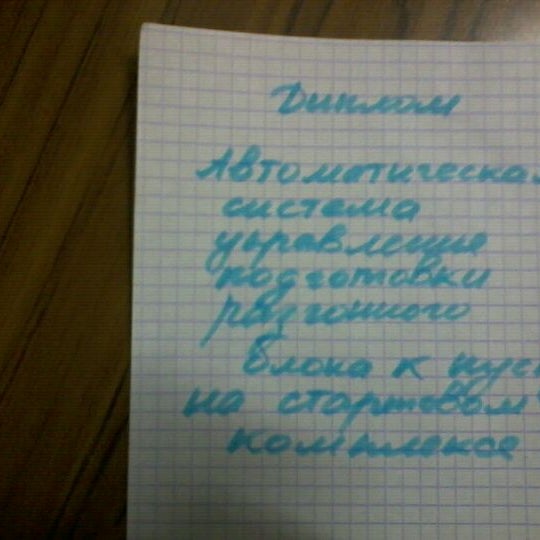 Диплом
Автоматическая
система
управление
подготовки
разгонного
блока к пуск
на стартовом
комплексе